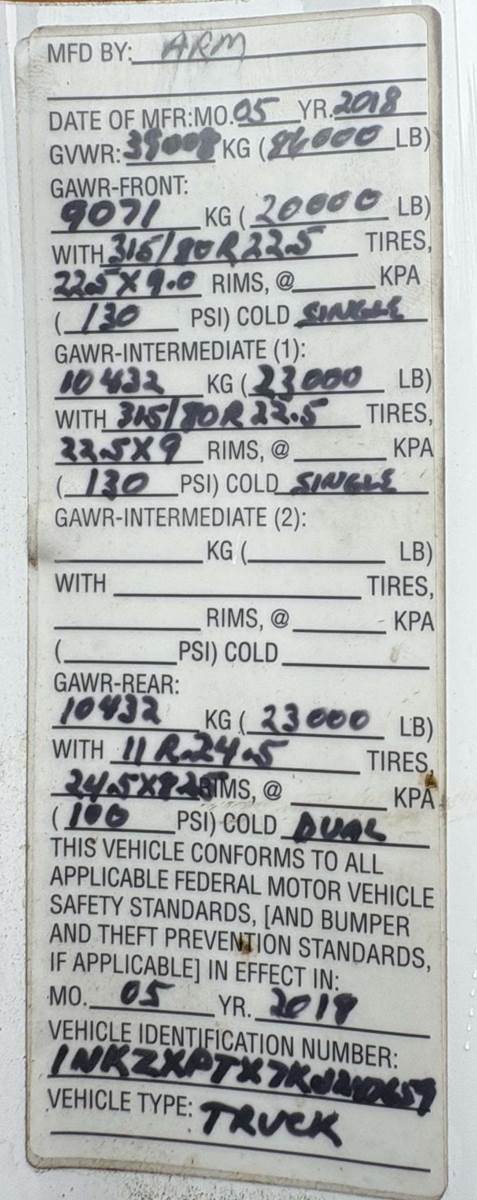 MFD BY: ARM
DATE OF MFR:MO.05 YR.2018
GVWR: KG ( LB)
GAWR-FRONT:
9071 KG ( 20000 LB)
WITH 315/80R22.5 TIRES,
22.5X9.0 RIMS, @ KPA
( 130 PSI) COLD SINGLE
GAWR-INTERMEDIATE (1):
10432 KG ( 23000 LB)
WITH 315/80R22.5 TIRES,
22.5X9 RIMS, @ KPA
( 130 PSI) COLD SINGLE
GAWR-INTERMEDIATE (2):
KG ( LB)
WITH TIRES,
RIMS, @ KPA
( PSI) COLD
GAWR-REAR:
10432 KG ( 23000 LB)
WITH 11R24.5 TIRES,
24.5X8.25 RIMS, @ KPA
( 100 PSI) COLD DUAL
THIS VEHICLE CONFORMS TO ALL
APPLICABLE FEDERAL MOTOR VEHICLE
SAFETY STANDARDS, [AND BUMPER
AND THEFT PREVENTION STANDARDS,
IF APPLICABLE] IN EFFECT IN:
MO. 05 YR. 2018
VEHICLE IDENTIFICATION NUMBER:
VEHICLE TYPE: TRUCK